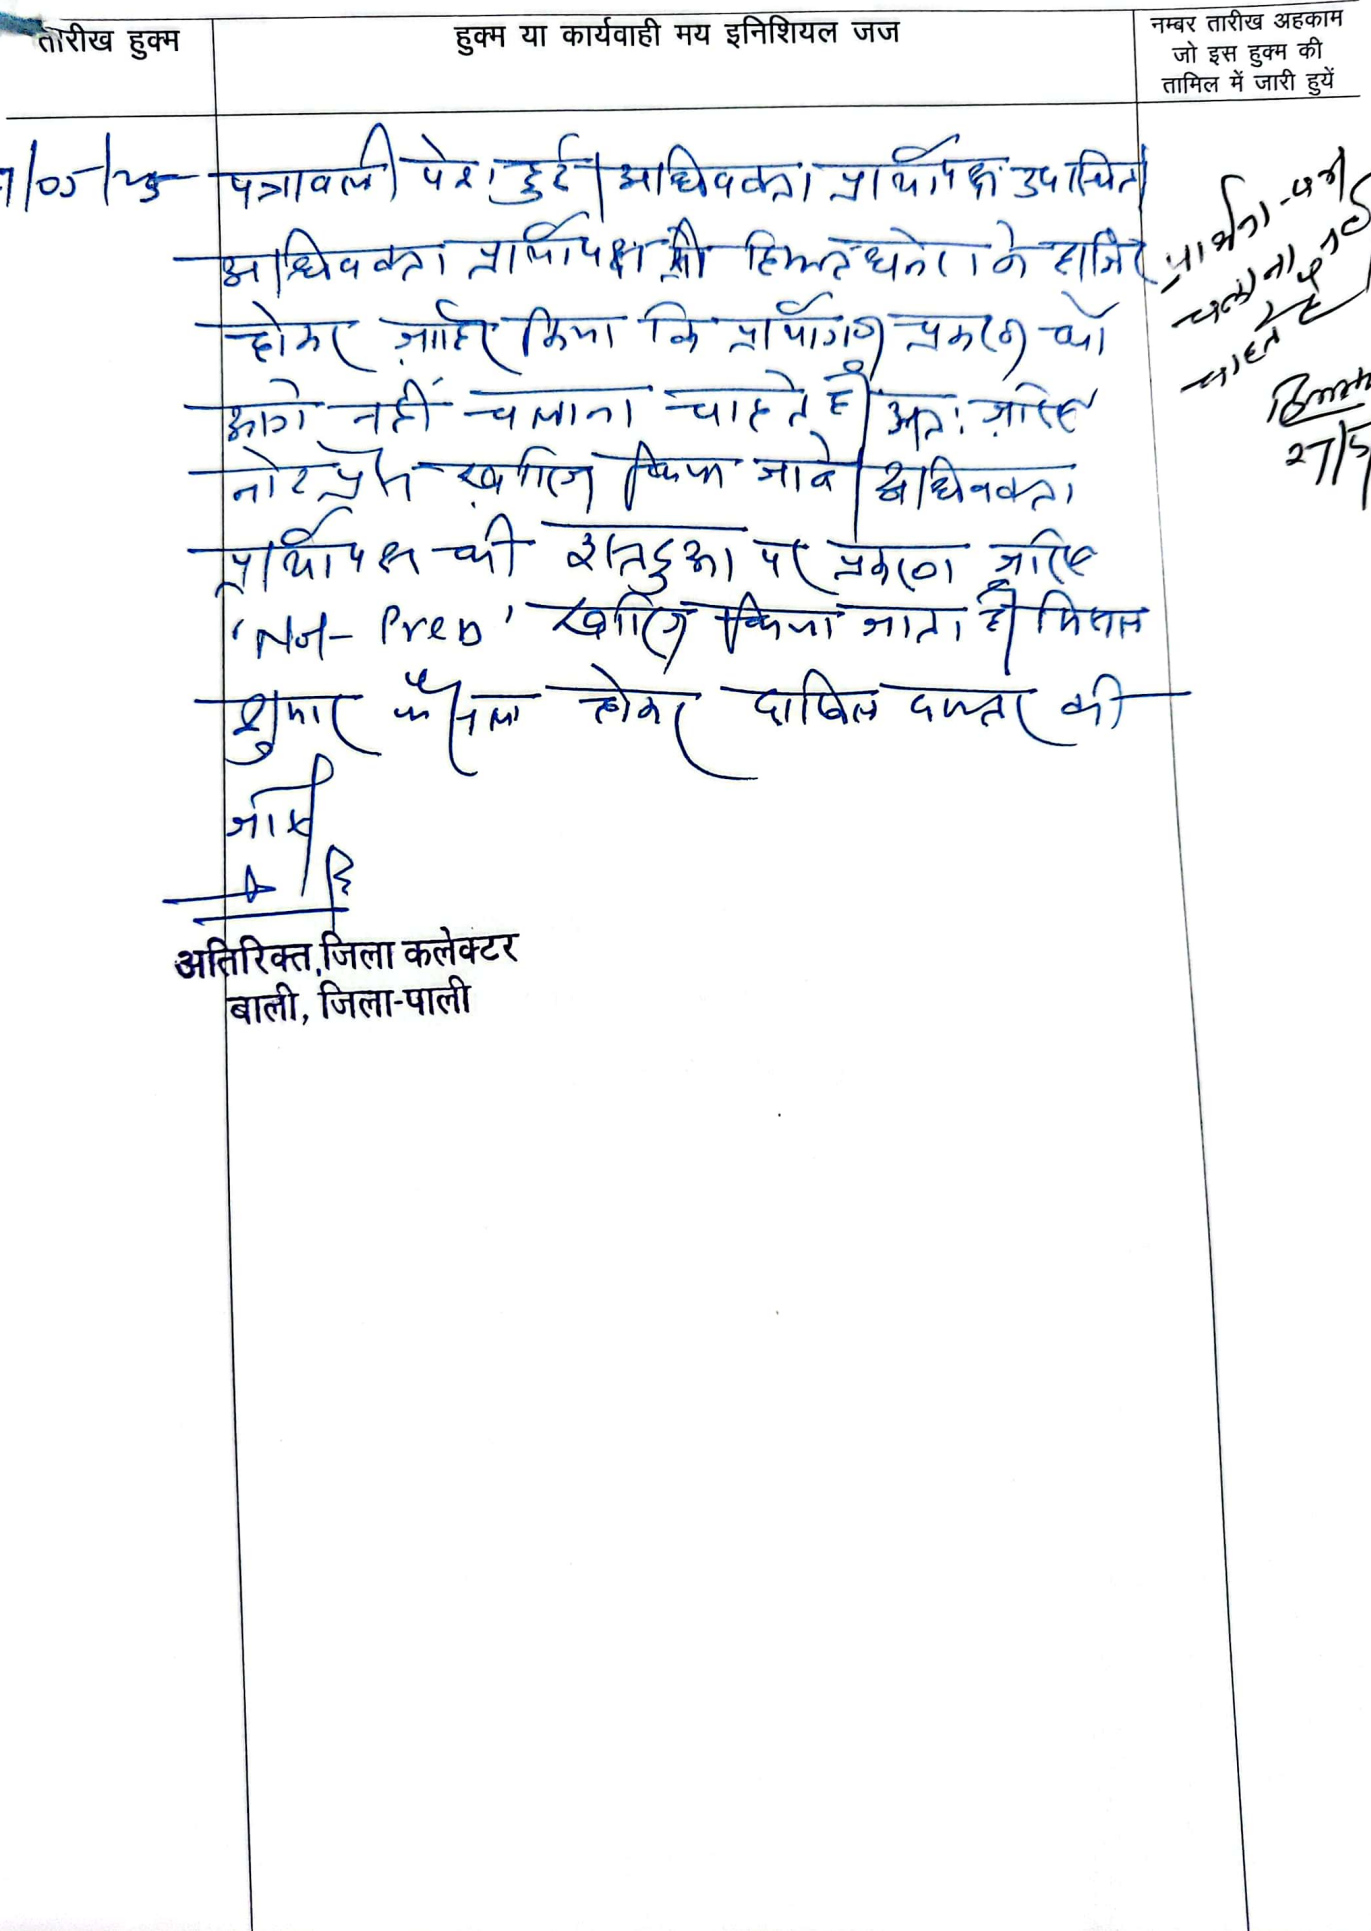 तारीख हुक्म
हुक्म या कार्यवाही मय इनिशियल जज
नम्बर तारीख अहकाम
जो इस हुक्म की
तामिल में जारी हुयें
पत्रावली पेश हुई। अधिवक्ता प्रार्थीपक्ष उपस्थित।
अधिवक्ता प्रार्थीपक्ष श्री हिम्मत के हाजिर
होकर ज़ाहिर किया कि प्रार्थीगण प्रकरण को
आगे नहीं चलाना चाहते है। अतः ज़रिए
नोट प्रेस ख़ारिज किया जावे। अधिवक्ता
प्रार्थीपक्ष की इस्तदुआ पर प्रकरण ज़रिए
'Not-Press' ख़ारिज किया जाता है। मिसल
शुमार फैसला होकर दाखिल दफ्तर की
जावे।
अतिरिक्त जिला कलेक्टर
बाली, जिला-पाली
प्रार्थना-पत्र
चलाना नहीं
चाहते है
27/5